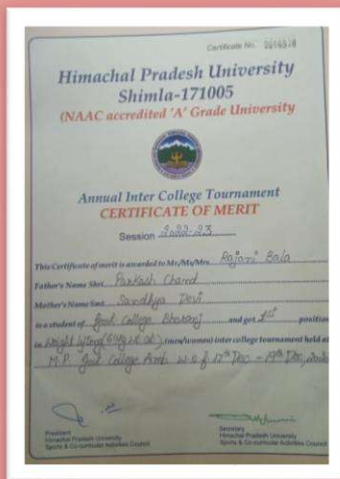 Certificate No.
Himachal Pradesh University
Shimla-171005
(NAAC accredited 'A' Grade University
Annual Inter College Tournament
CERTIFICATE OF MERIT
Session 2022-23
This Certificate of merit is awarded to Mr/Ms/Mrs. Rajani Bala
Father's Name Shri. Parkash Chand
Mother's Name Smt. Sandhya Devi
is a student of Govt College Bhoranj and got 1st position
in Weight lifting (64kg wt. cat.) (men/women) inter college tournament held at
M.P. Govt College Amb w.e.f 17th Dec - 19th Dec,
President
Himachal Pradesh University
Sports & Co-curricular Activities Council
Secretary
Himachal Pradesh University
Sports & Co-curricular Activities Council